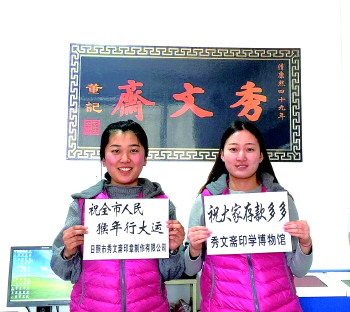 清康熙四十九年
秀文齋
董記
祝全市人民
猴年行大运
日照市秀文斋印章制作有限公司
祝大家存款多多
秀文斋印学博物馆